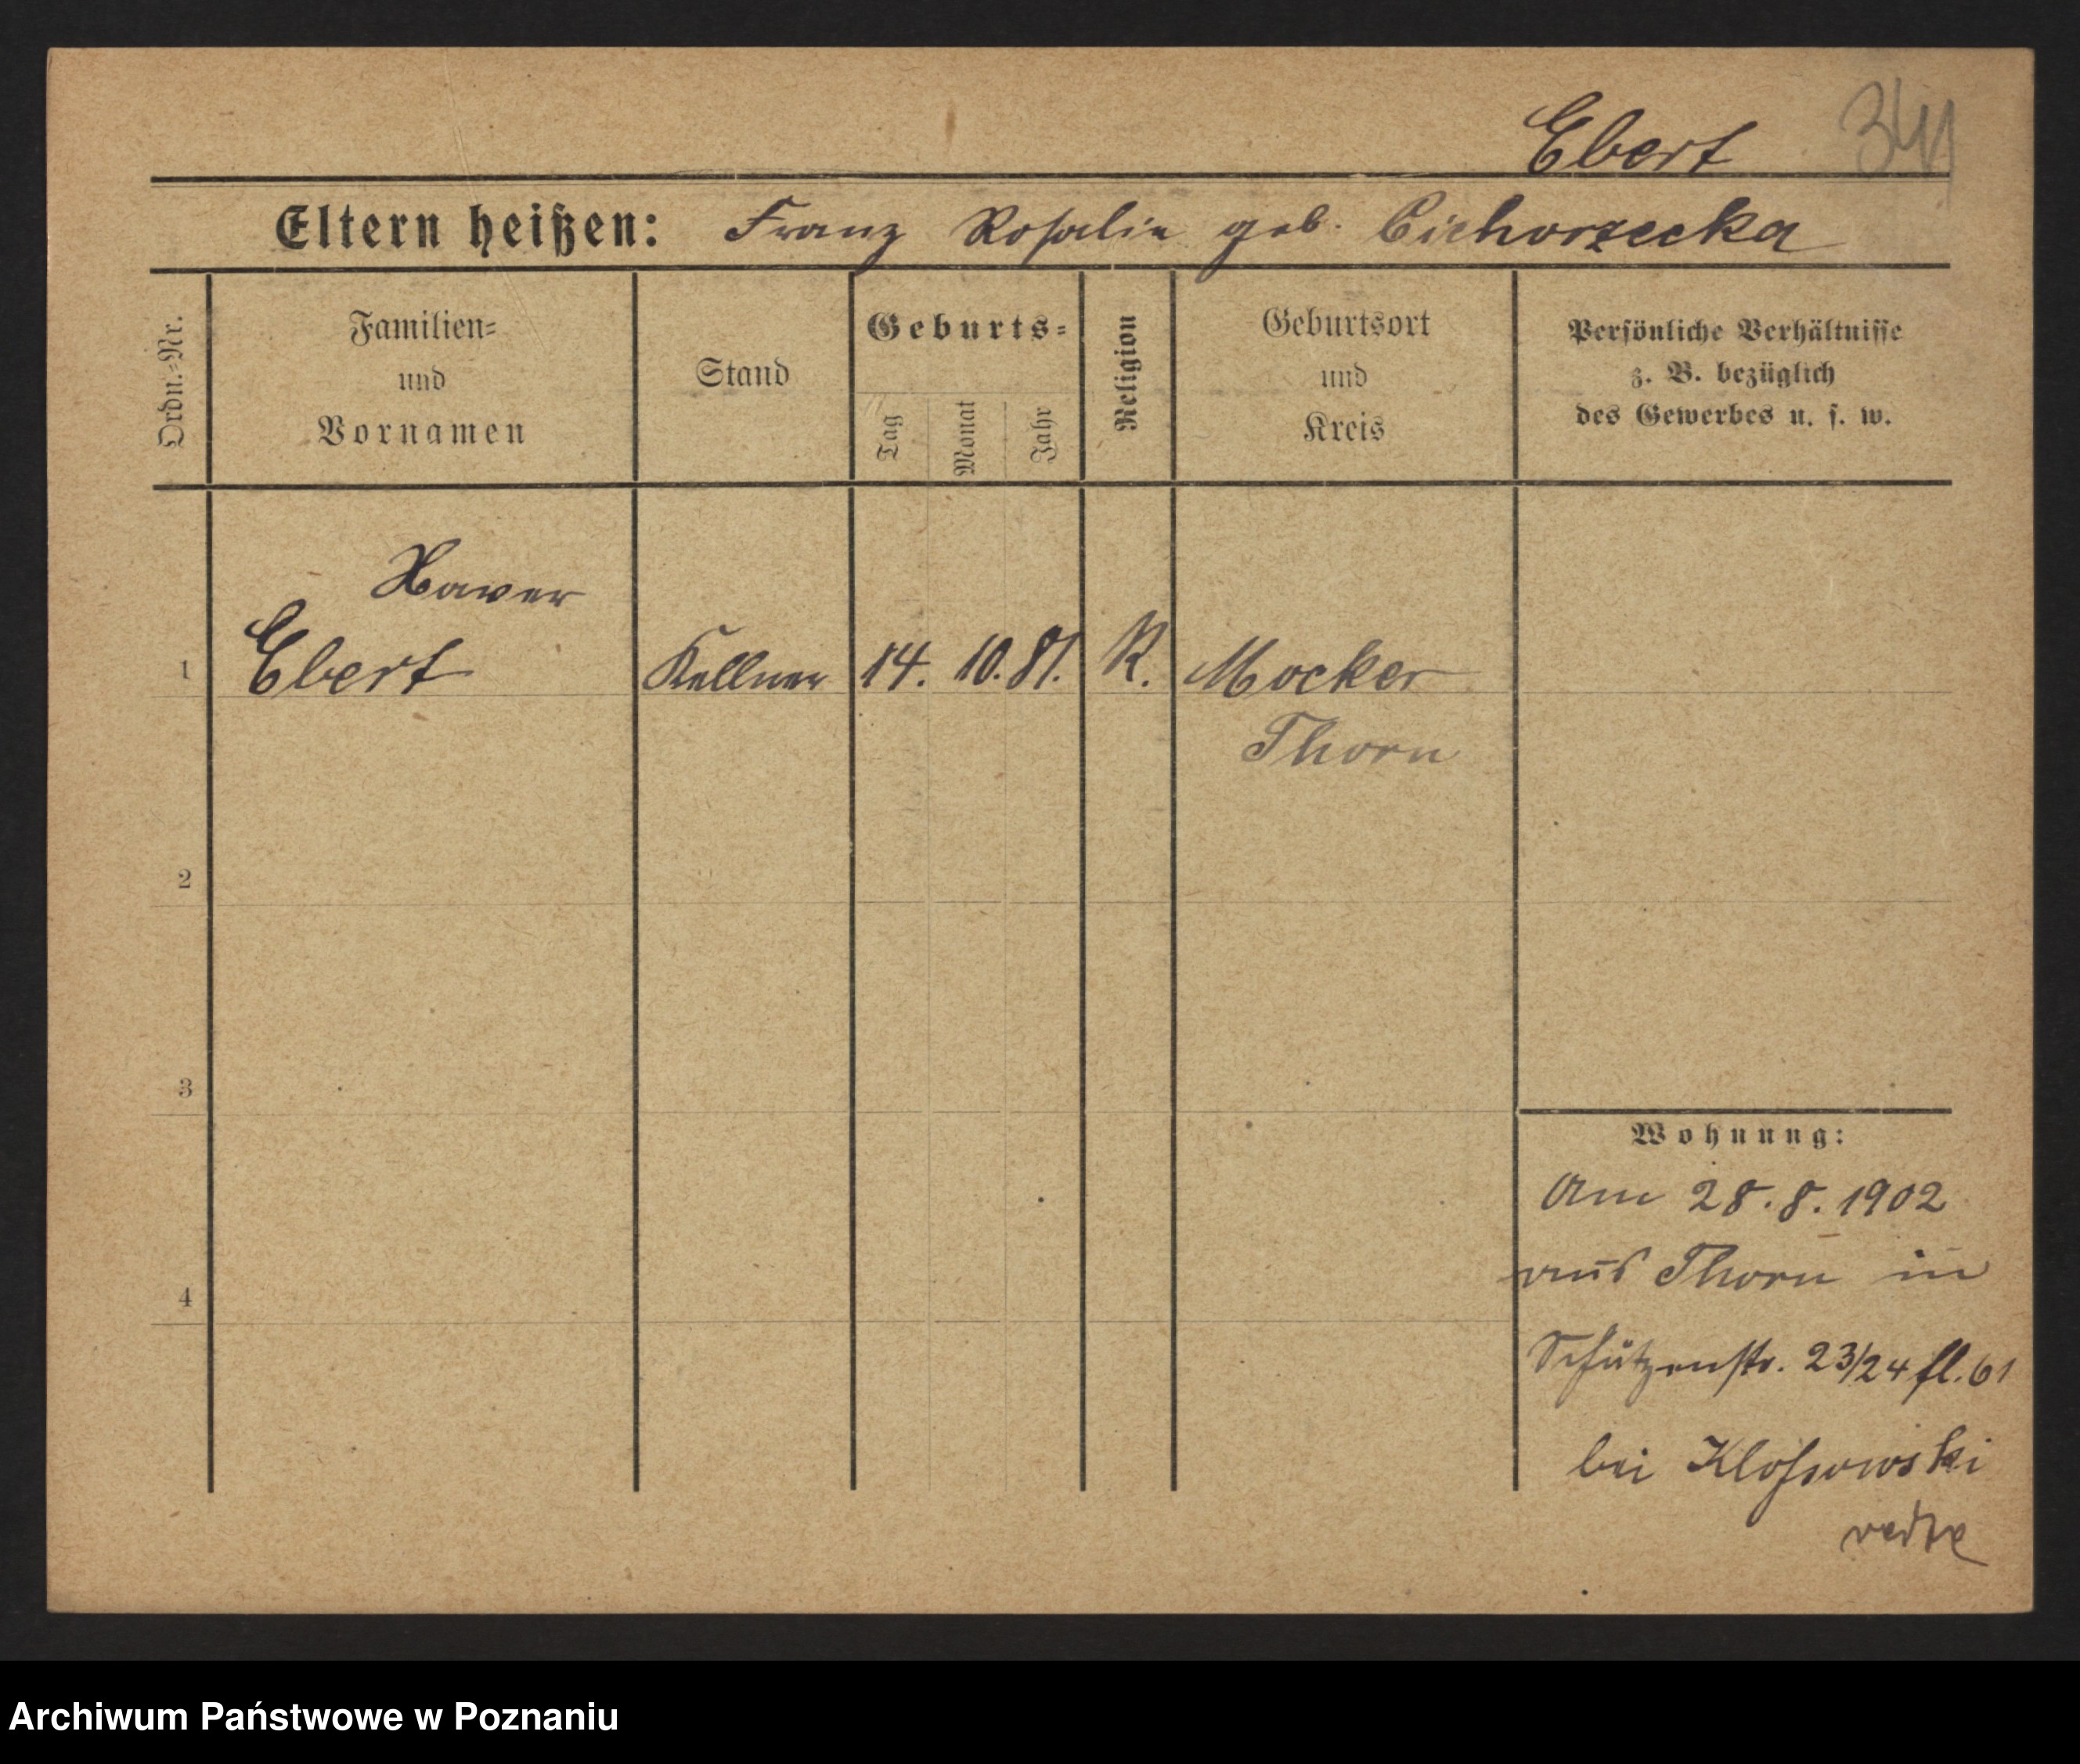 Ebert 341
Eltern heißen: Franz Rosalie geb. Cichorzecka
Ordn.-Nr.
Familien-
und
Vornamen
Stand
Geburts-
Tag
Monat
Jahr
Religion
Geburtsort
und
Kreis
Persönliche Verhältnisse
z. B. bezüglich
des Gewerbes u. s. w.
Xaver
1 Ebert Kellner 14. 10. 81. K. Mocker
Thorn
2
3
4
Wohnung:
Am 28.8.1902
aus Thorn in
Schützenstr. 23/24 fl. 61
bei Klossowski
Archiwum Państwowe w Poznaniu